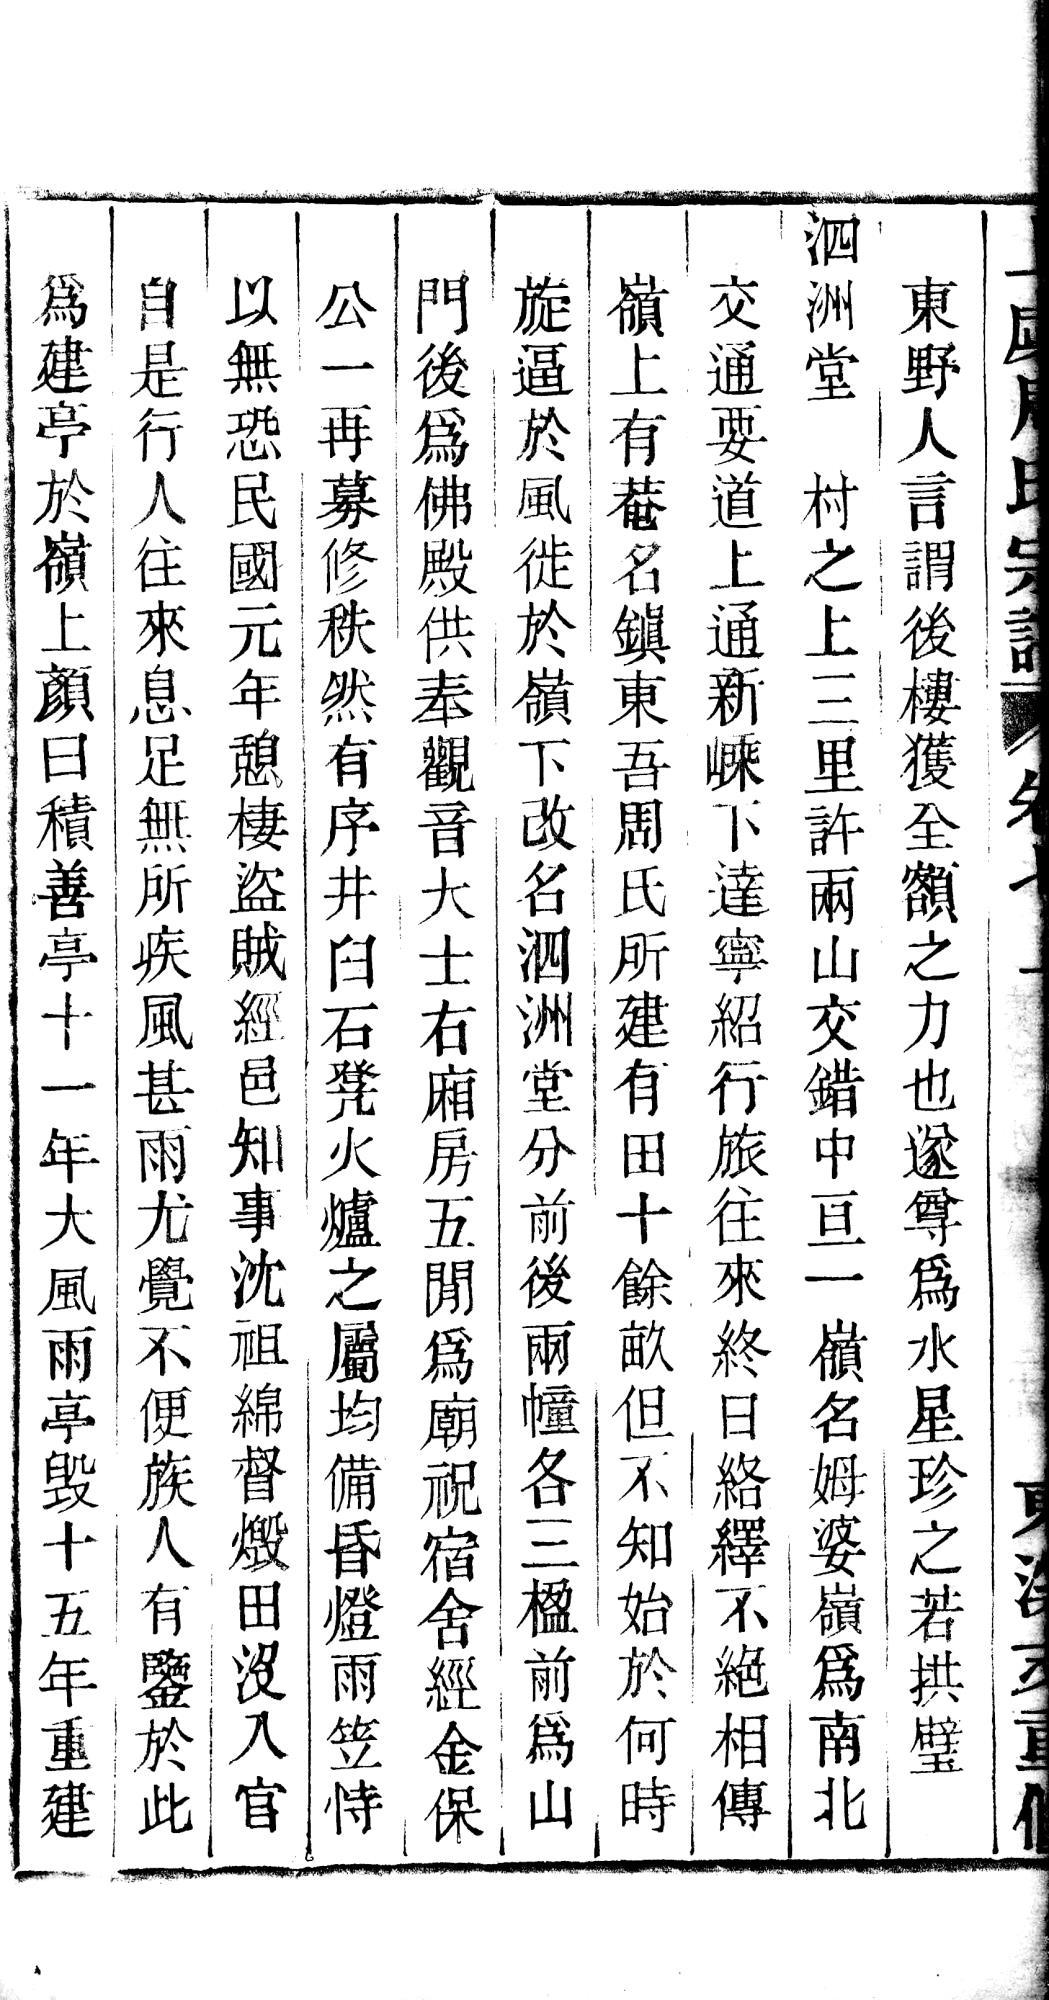 東野人言謂後樓獲全額之力也遂尊爲水星珍之若拱璧
泗洲堂　村之上三里許兩山交錯中亘一嶺名姆婆嶺爲南北
交通要道上通新嵊下達寧紹行旅往來終日絡繹不絕相傳
嶺上有菴名鎭東吾周氏所建有田十餘畝但不知始於何時
旋逼於風徙於嶺下改名泗洲堂分前後兩幢各三楹前爲山
門後爲佛殿供奉觀音大士右廂房五閒爲廟祝宿舍經金保
公一再募修秩然有序井臼石凳火爐之屬均備昏燈雨笠恃
以無恐民國元年憩棲盜賊經邑知事沈祖綿督燬田沒入官
自是行人往來息足無所疾風甚雨尤覺不便族人有鑒於此
爲建亭於嶺上顏曰積善亭十一年大風雨亭毀十五年重建